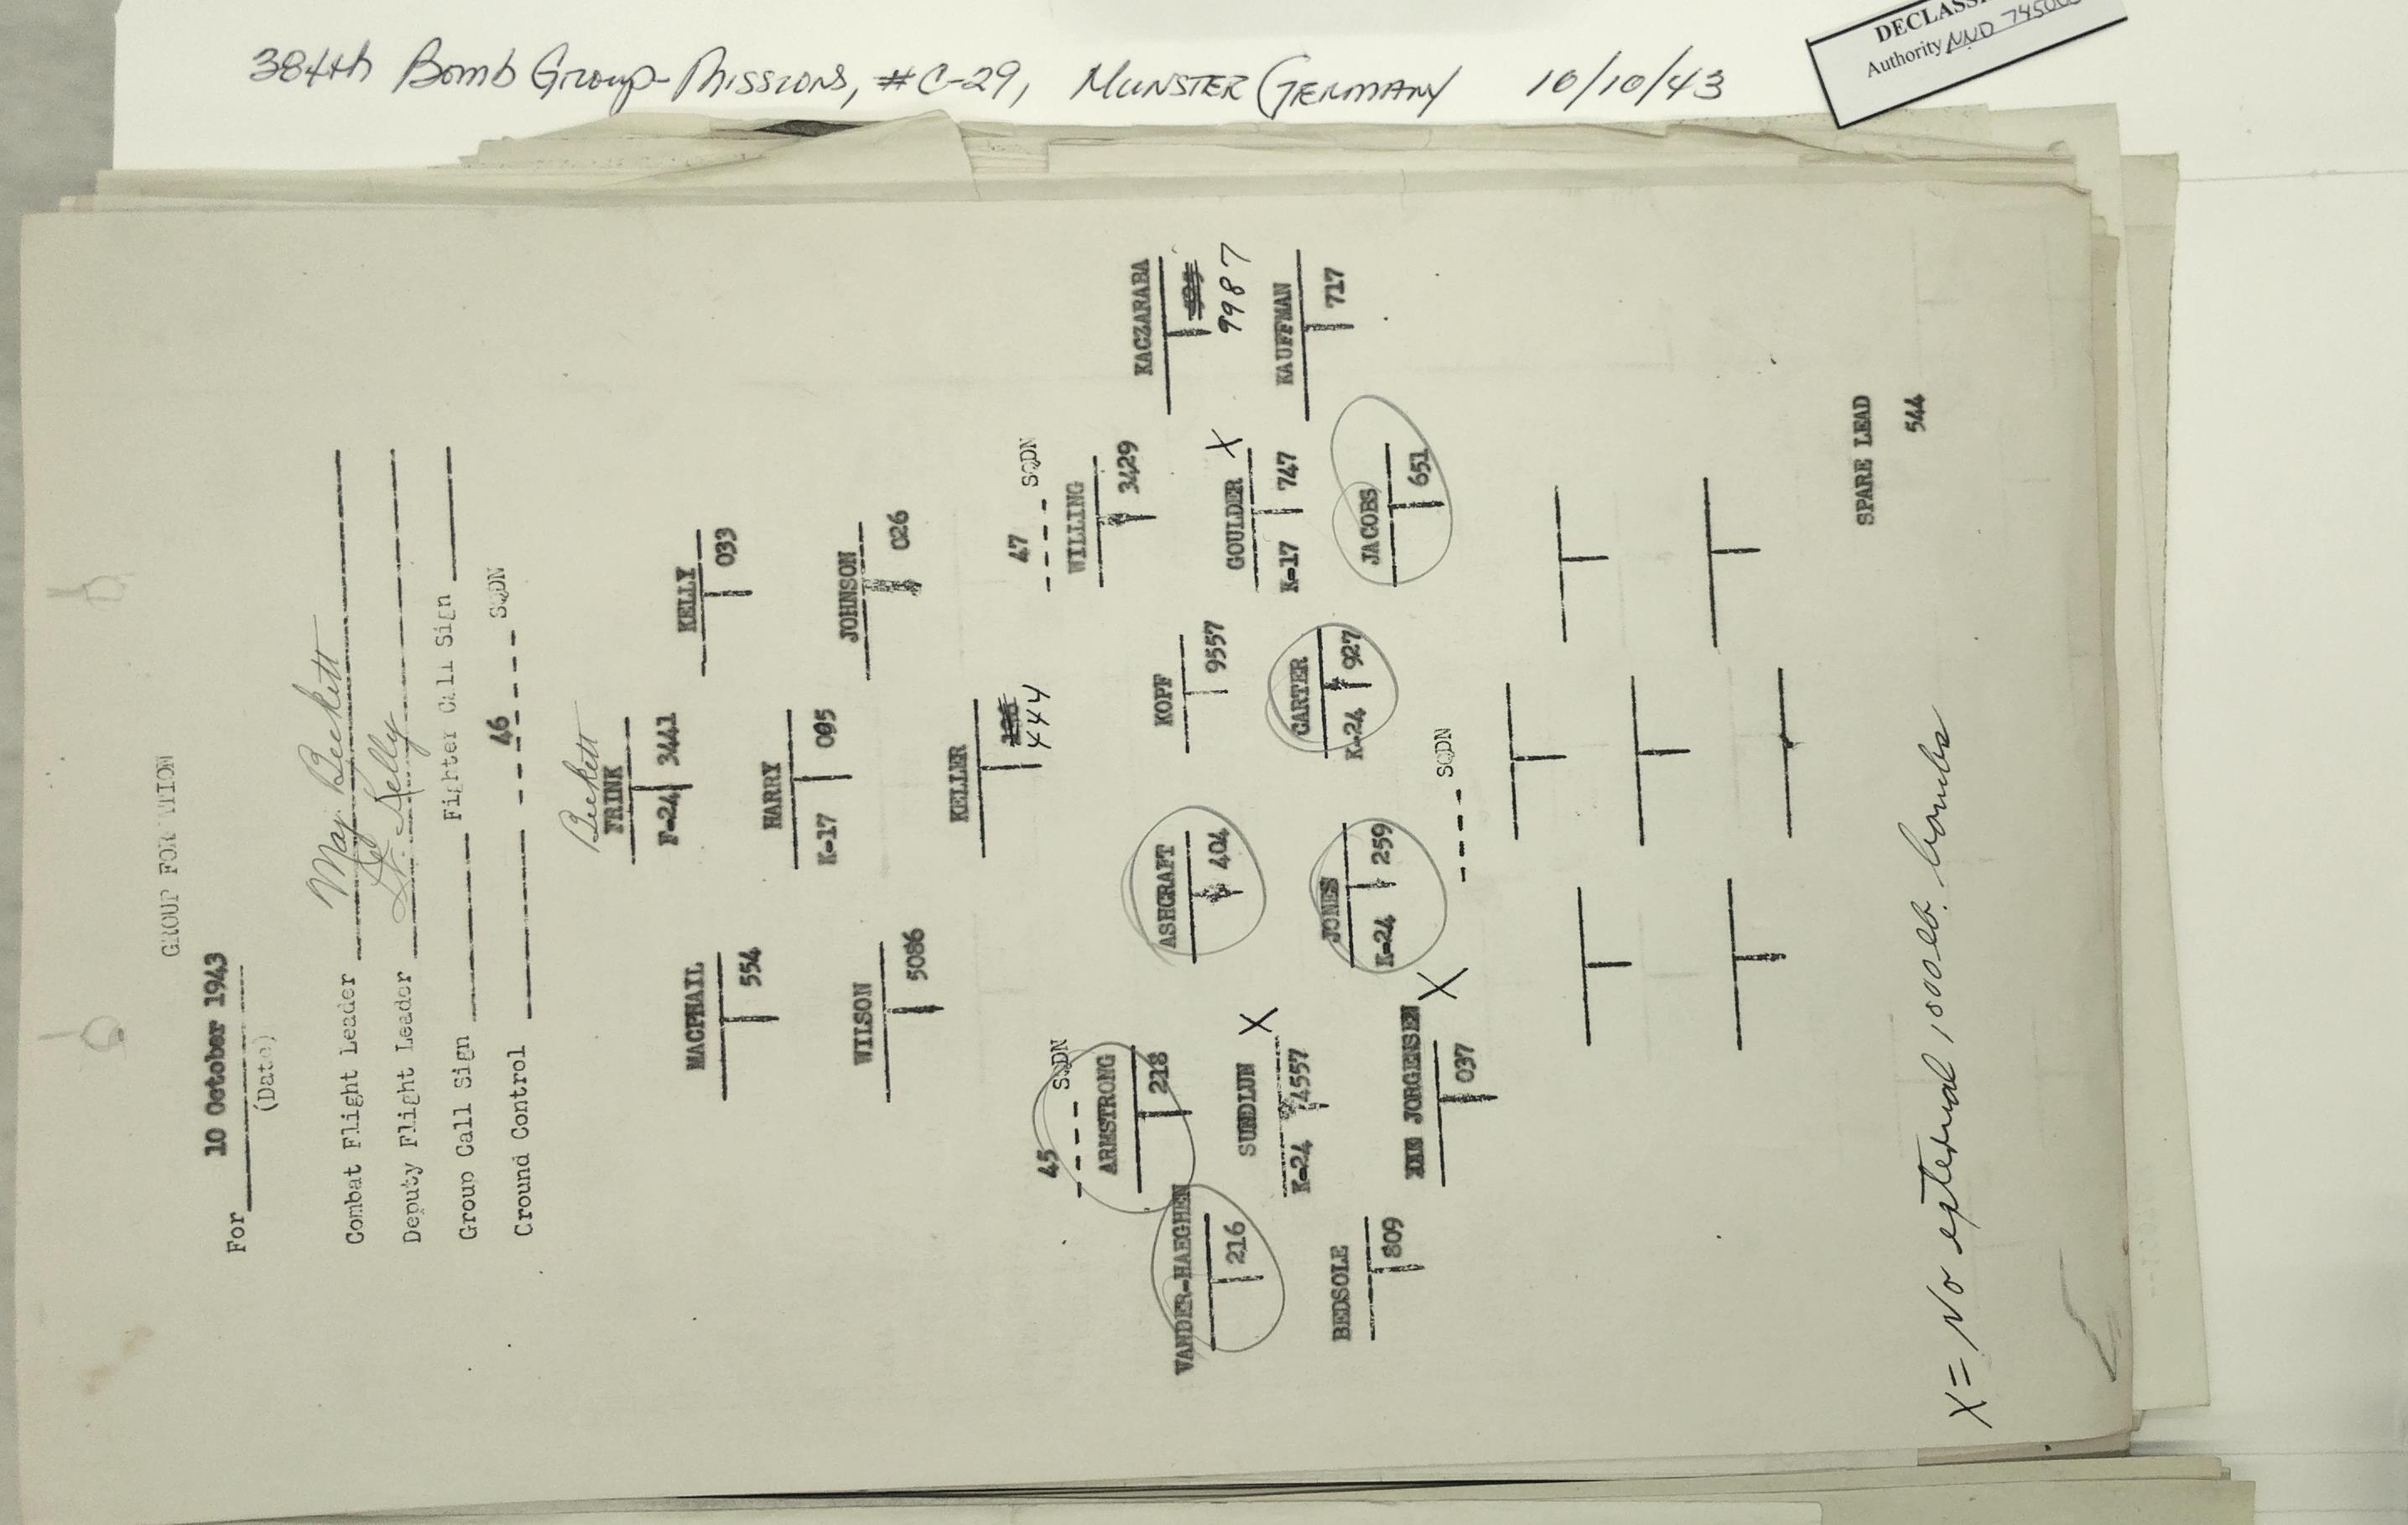 384th Bomb Group-Missions, #C-29, Munster Germany 10/10/43
Authority NND
GROUP
For 10 October 1943
(Date)
Combat Flight Leader Maj. Beckett
Deputy Flight Leader Lt. Kelly
Group Call Sign Fighter Call Sign
Ground Control
46 SQDN
Beckett
FRINK
F-24 3441
MACPHAIL
554
KELLY
033
HARRY
K-17 095
WILSON
5086
JOHNSON
026
KELLER
444
45 SQDN
47 SQDN
ARMSTRONG
218
WILLING
3429
VANDER-HAEGHEN
216
ASHCRAFT
404
KOPF
9557
KACZARABA
9987
SUNDLUN X
K-24 4557
GOULDER X
K-17 747
BEDSOLE
809
JONES
K-24 259
CARTER
K-24 927
KAUFFMAN
717
JORGENSEN X
037
JACOBS
651
SQDN
SPARE LEAD
544
X = No external 1000lb. bombs